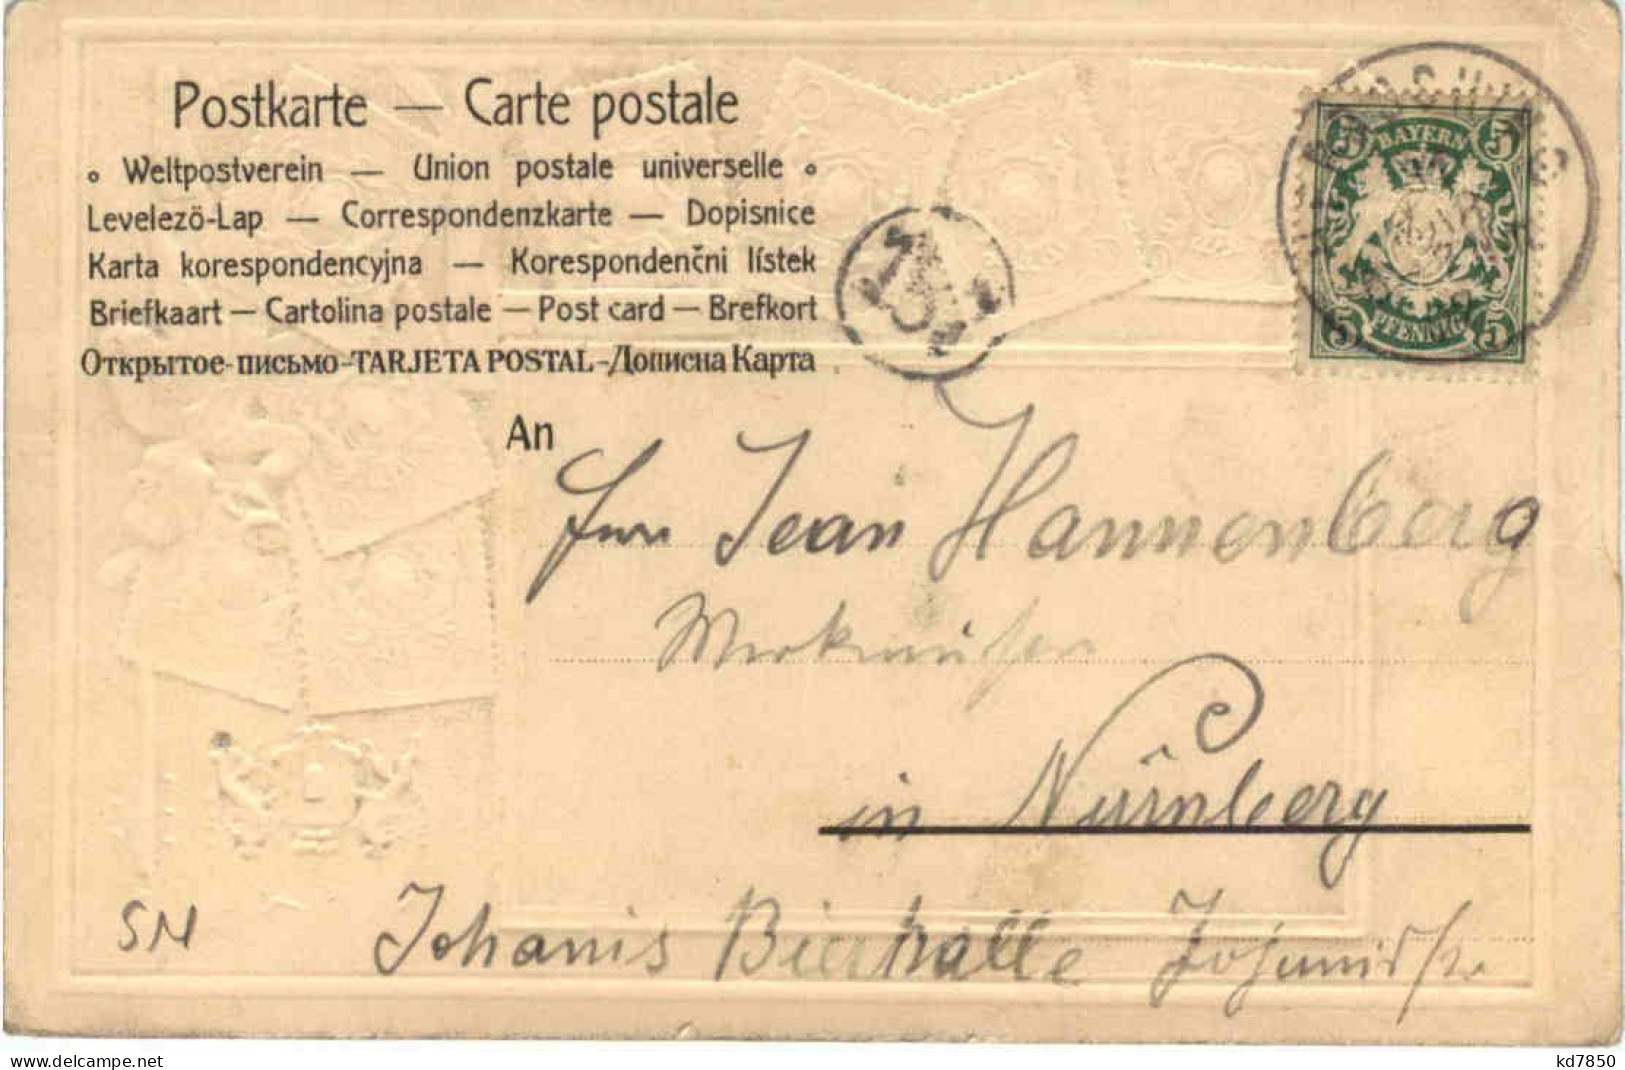 Postkarte — Carte postale
Weltpostverein — Union postale universelle
Levelezö-Lap — Correspondenzkarte — Dopisnice
Karta korespondencyjna — Korespondenčni lístek
Briefkaart — Cartolina postale — Post card — Brefkort
Открытое-письмо-TARJETA POSTAL-Дописна Карта
5 BAYERN 5
5 PFENNIG 5
An
Jean Hannenberg
in Nürnberg
SN
Johanis Bierhalle
delcampe.net
kd7850